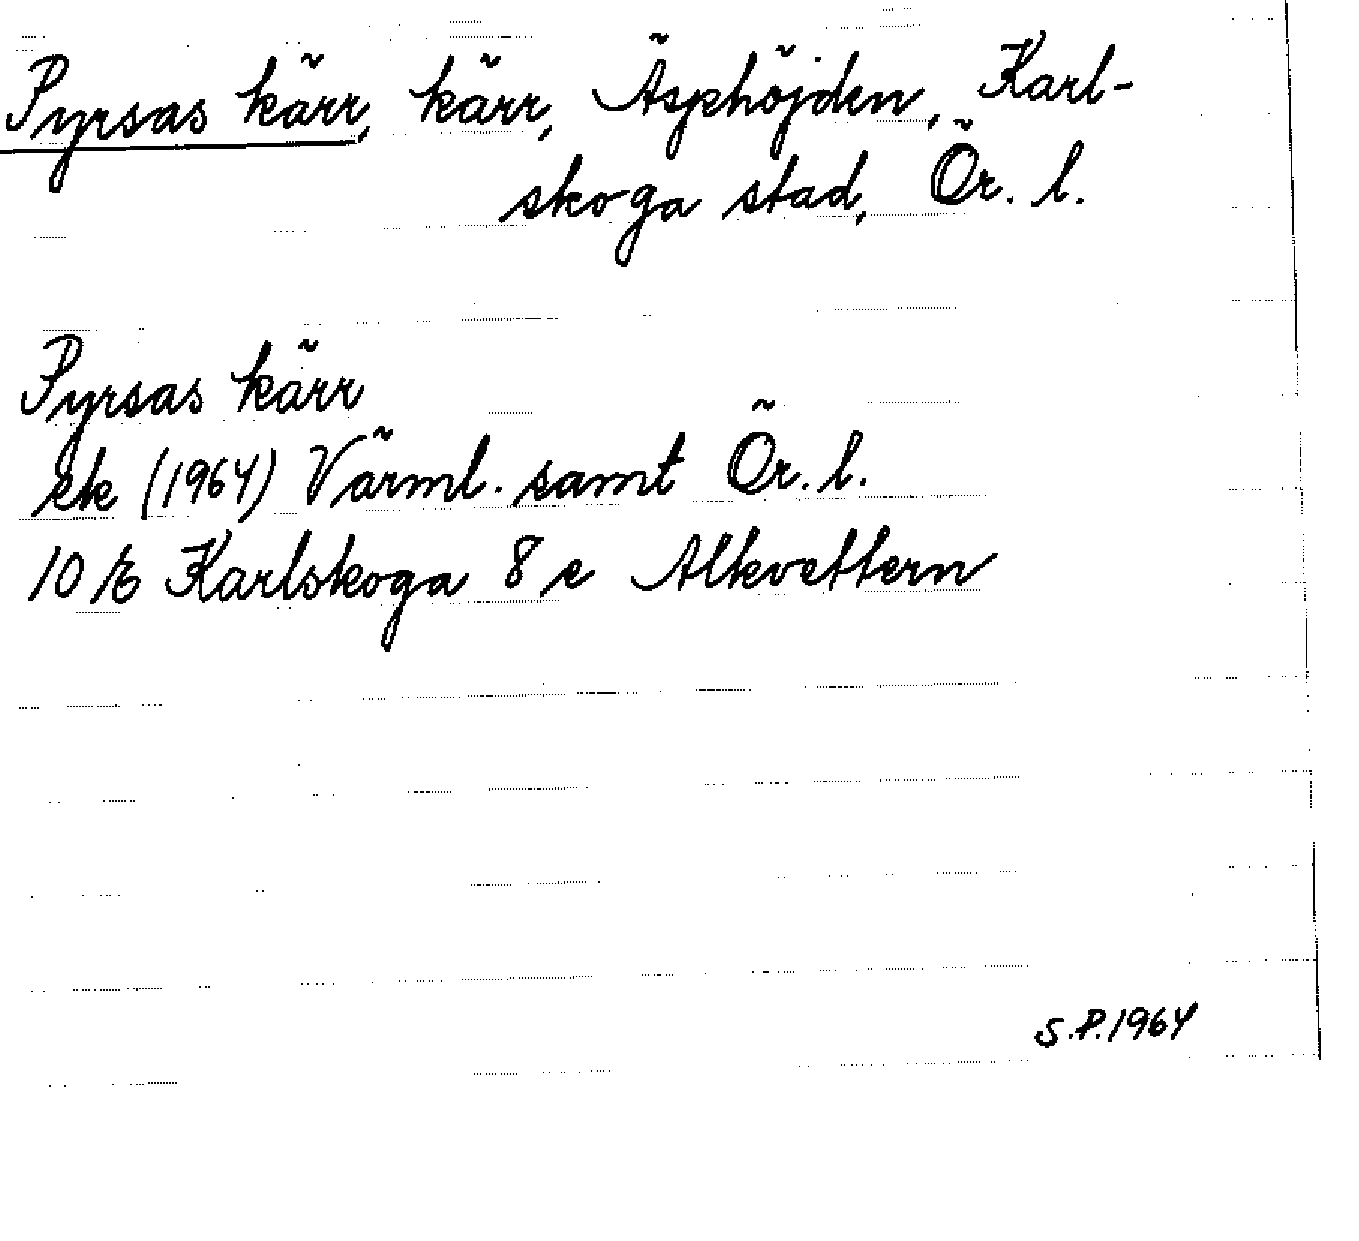 Pyrsas kärr, kärr, Äsphöjden, Karl-
skoga stad, Ör. l.
Pyrsas kärr
ek (1964) Värml. samt Ör. l.
10 E Karlskoga 8 e Alkvettern
S.P. 1964